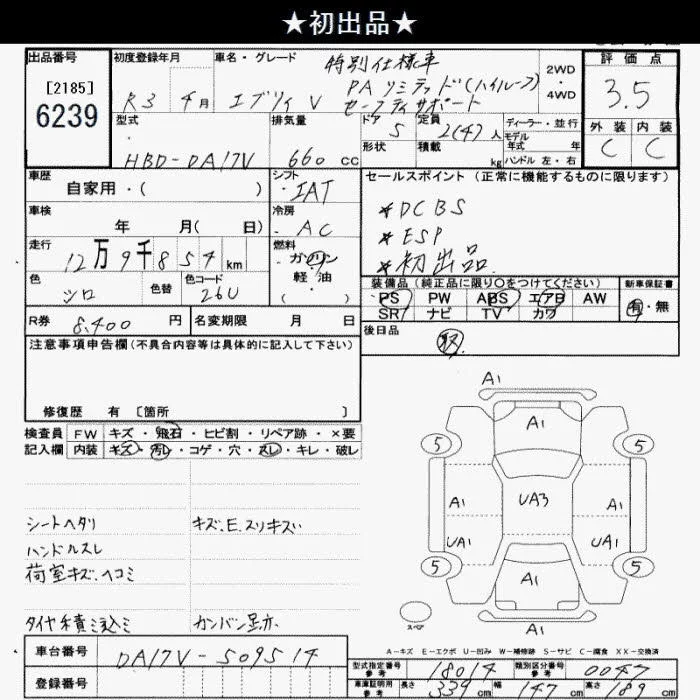 ★初出品★
出品番号 初度登録年月 車名・グレード 特別仕様車 2WD・4WD 評価点
[2185] 6239 R3年4月 エブリィV PAリミテッド(ハイルーフ) セーフティサポート 3.5
型式 排気量 ドア 5 定員 2(4)人 ディーラー・並行 外装 内装
HBD-DA17V 660cc 形状 積載 kg モデル年式 年 ハンドル 左・右 C C
車歴 自家用・( ) シフト IAT セールスポイント(正常に機能するものに限ります)
車検 年 月( 日) 冷房 AC *DCBS
走行 12万9千854km 燃料 ガソリン・軽油・( ) *ESP
*初出品
色 シロ 色替 色コード 26U
装備品(純正品に限り○をつけてください) 新車保証書
PS PW ABS エアB AW 有・無
SR ナビ TV カワ
R券 8,400円 名変期限 月 日 後日品 取
注意事項申告欄(不具合内容等は具体的に記入して下さい)
修復歴 有 [箇所 ]
検査員 FW キズ・飛石・ヒビ割・リペア跡・×要
記入欄 内装 キズ・汚レ・コゲ・穴・スレ・キレ・破レ
A1
A1
5 5
A1 UA3 A1
UA1 UA1
5 5
A1
スペア A1
シートヘタリ キズ、E、スリキズ
ハンドルスレ
荷室キズ、ヘコミ
タイヤ積ミ込ミ カンバン
A−キズ E−エクボ U−凹み W−補修跡 S−サビ C−腐食 XX−交換済
車台番号 DA17V-509514
登録番号
型式指定番号 参考 18014 類別区分番号 参考 0047
車庫証明用 参考 長さ 339cm 幅 147cm 高さ 189cm